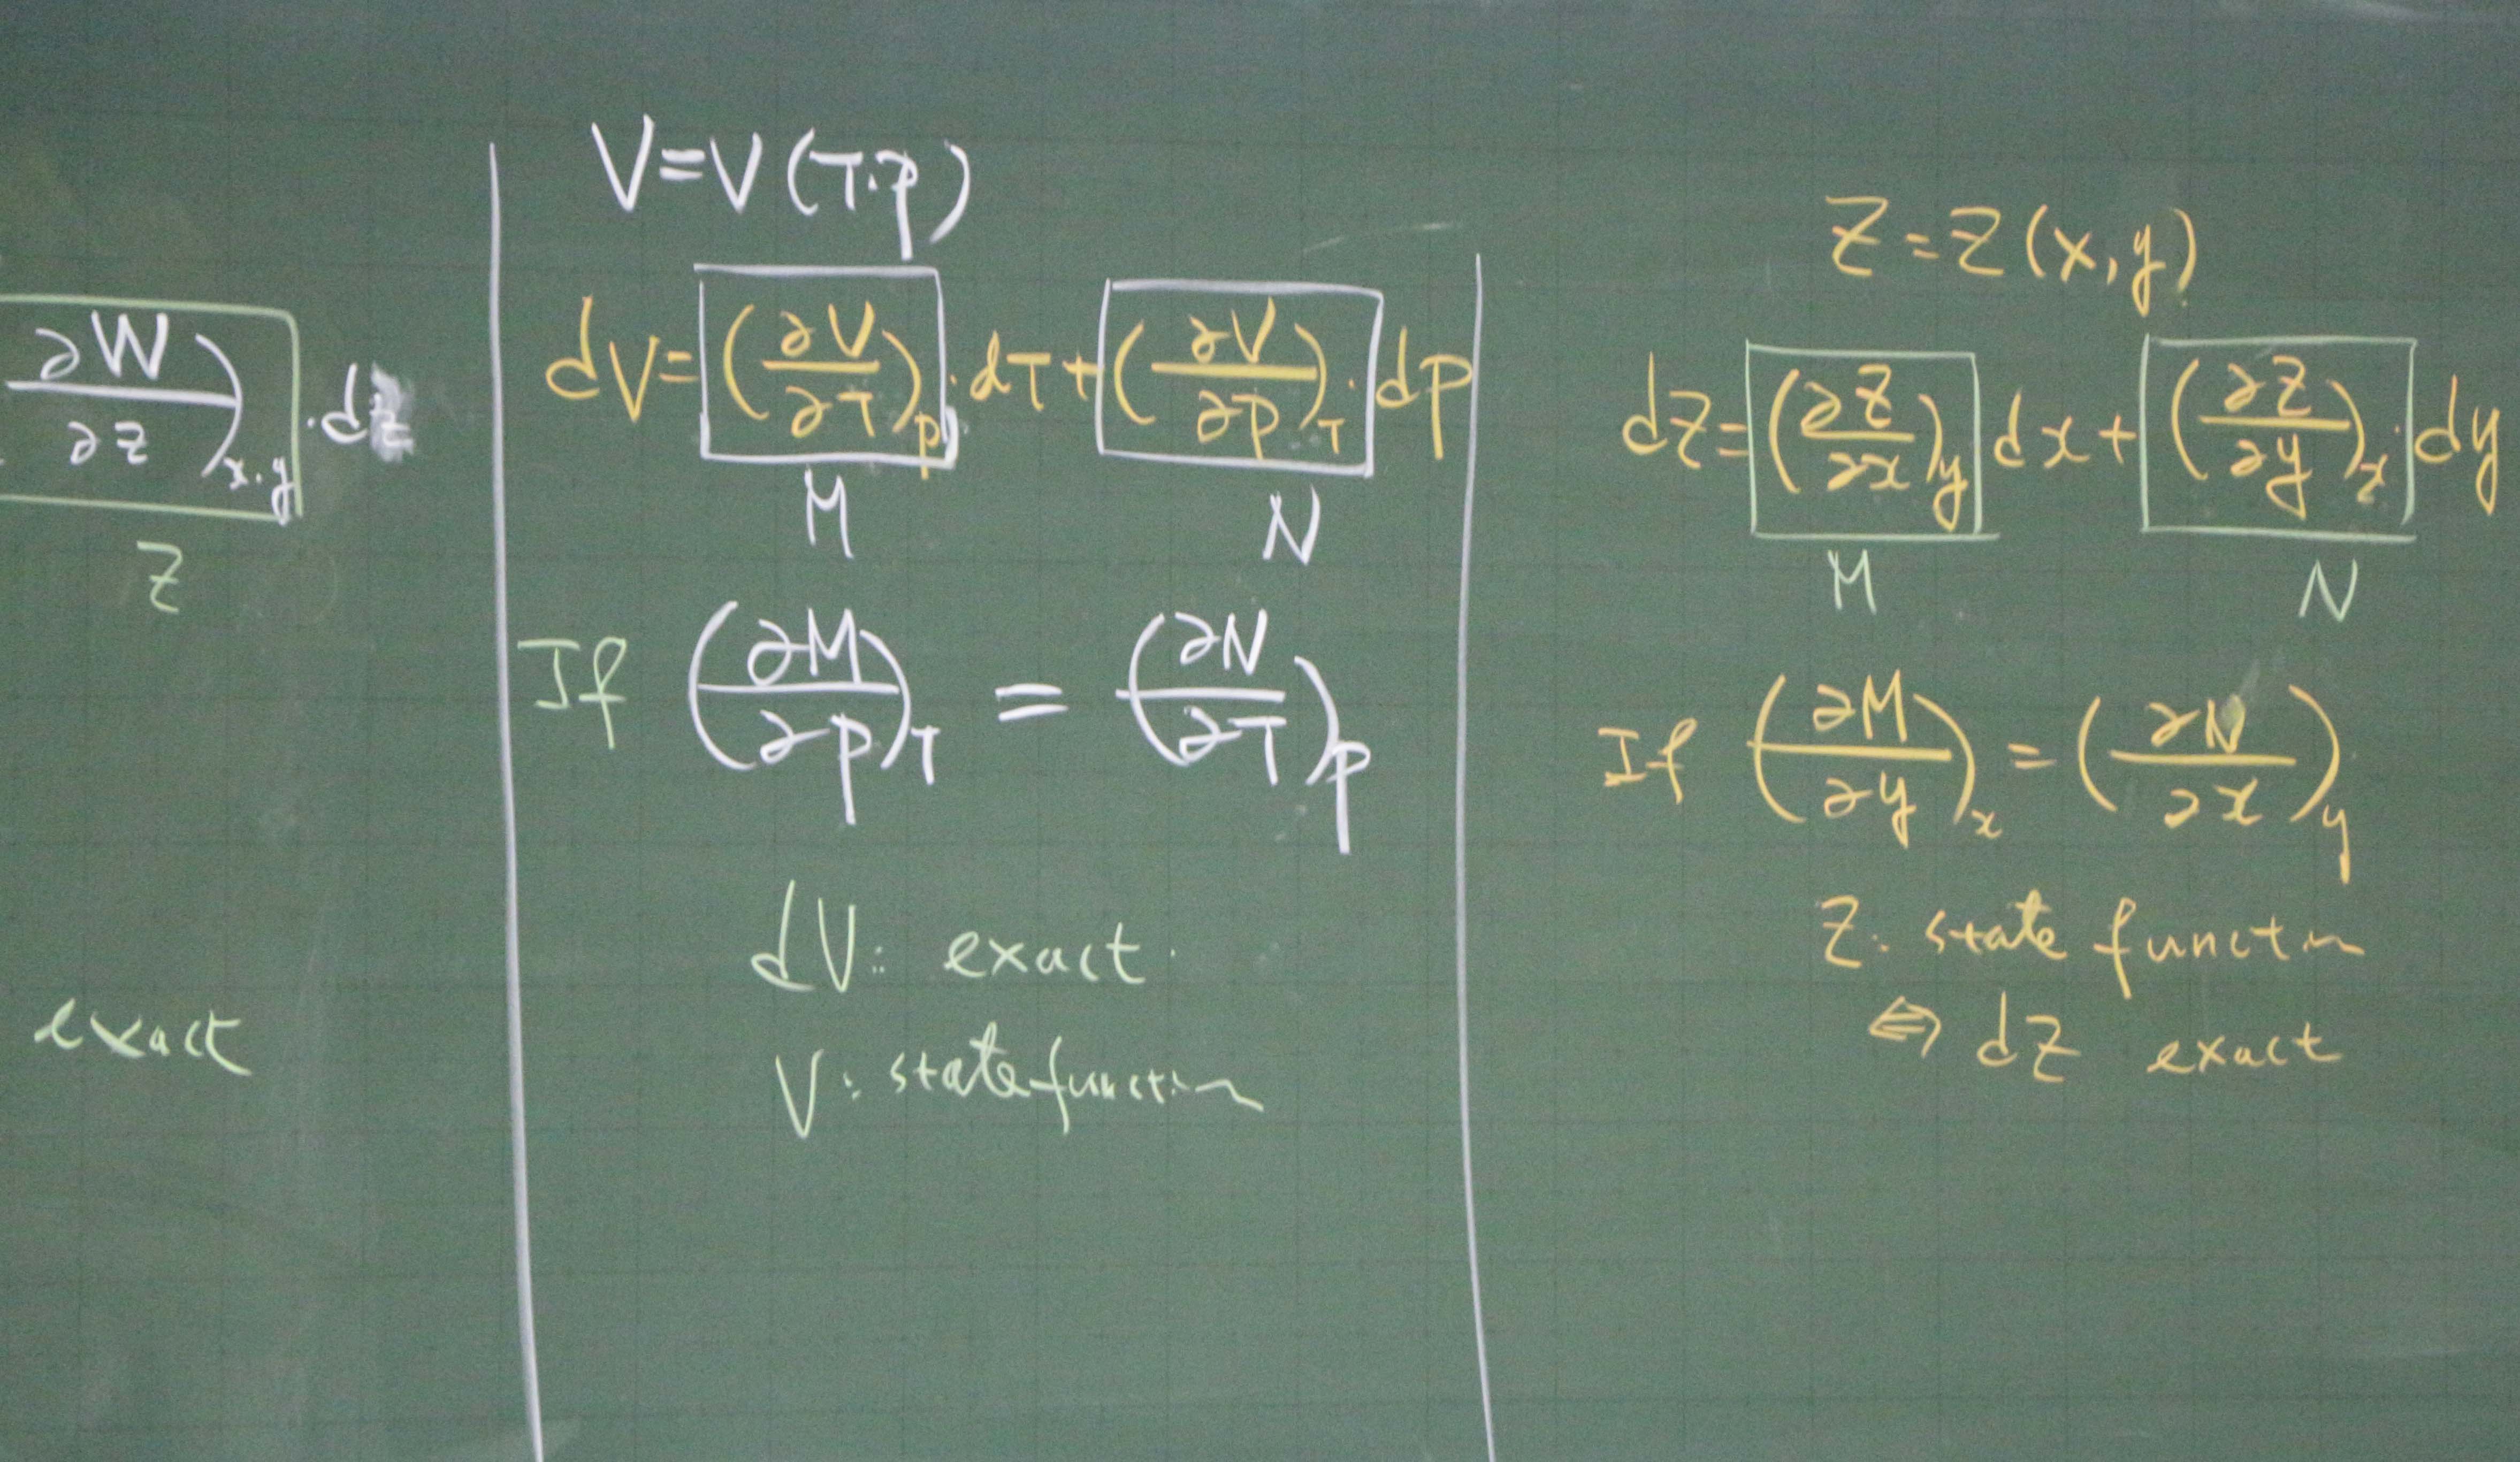 (∂W/∂z)x.y .dz
Z
exact
V=V(T.P)
dV=(∂V/∂T)P.dT+(∂V/∂P)T.dP
M N
If (∂M/∂P)T = (∂N/∂T)P
dV: exact.
V: state function
Z=Z(x,y)
dZ=(∂Z/∂x)y dx+(∂Z/∂y)x.dy
M N
If (∂M/∂y)x = (∂N/∂x)y
Z: state function
⇔ dZ exact